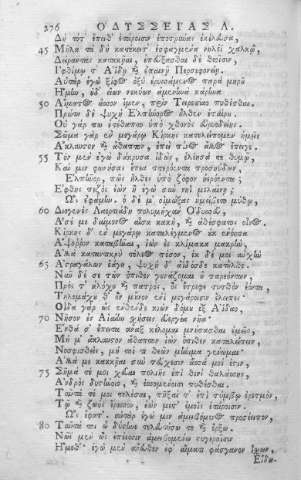 276 ΟΔΥΣΣΕΙΑΣ Λ.
Δὴ τότ' ἔπειθ' ἑτάροισιν ἐποτρύνας ἐκέλευσα,
45 Μῆλα τὰ δὴ κατέκειτ' ἐσφαγμένα νηλέϊ χαλκῷ,
Δείραντας κατακῆαι, ἐπεύξασθαι δὲ θεοῖσιν,
Ἰφθίμῳ τ' Ἀΐδῃ καὶ ἐπαινῇ Περσεφονείῃ.
Αὐτὰρ ἐγὼ ξίφος ὀξὺ ἐρυσσάμενος παρὰ μηροῦ
Ἥμην, οὐδ' εἴων νεκύων ἀμενηνὰ κάρηνα
50 Αἵματος ἆσσον ἴμεν, πρὶν Τειρεσίαο πυθέσθαι.
Πρώτη δὲ ψυχὴ Ἐλπήνορος ἦλθεν ἑταίρου·
Οὐ γάρ πω ἐτέθαπτο ὑπὸ χθονὸς εὐρυοδείης·
Σῶμα γὰρ ἐν μεγάρῳ Κίρκης κατελείπομεν ἡμεῖς
Ἄκλαυτον καὶ ἄθαπτον, ἐπεὶ πόνος ἄλλος ἔπειγε.
55 Τὸν μὲν ἐγὼ δάκρυσα ἰδὼν, ἐλέησά τε θυμῷ,
Καί μιν φωνήσας ἔπεα πτερόεντα προσηύδων,
Ἐλπῆνορ, πῶς ἦλθες ὑπὸ ζόφον ἠερόεντα;
Ἔφθης πεζὸς ἐὼν ἢ ἐγὼ σὺν νηῒ μελαίνῃ;
Ὣς ἐφάμην, ὁ δέ μ' οἰμώξας ἠμείβετο μύθῳ
60 Διογενὲς Λαερτιάδη πολυμήχαν' Ὀδυσσεῦ,
Ἆσέ με δαίμονος αἶσα κακὴ, καὶ ἀθέσφατος οἶνος.
Κίρκης δ' ἐν μεγάρῳ καταλέγμενος οὐκ ἐνόησα
Ἄψορρον καταβῆναι, ἰὼν ἐς κλίμακα μακρὴν,
Ἀλλὰ καταντικρὺ τέγεος πέσον, ἐκ δέ μοι αὐχὴν
65 Ἀστραγάλων ἐάγη, ψυχὴ δ' ἀϊδόσδε κατῆλθε.
Νῦν δέ σε τῶν ὄπιθεν γουνάζομαι οὐ παρεόντων
Πρός τ' ἀλόχου καὶ πατρὸς, ὅ σ' ἔτρεφε τυτθὸν ἐόντα,
Τηλεμάχου θ' ὃν μοῦνον ἐνὶ μεγάροισιν ἔλειπες·
Οἶδα γὰρ ὡς ἐνθένδε κιὼν δόμου ἐξ Ἀΐδαο,
70 Νῆσον ἐς Αἰαίην σχήσεις εὐεργέα νῆα·
Ἔνθα σ' ἔπειτα ἄναξ κέλομαι μνήσασθαι ἐμεῖο,
Μή μ' ἄκλαυτον ἄθαπτον ἰὼν ὄπιθεν καταλείπειν
Νοσφισθεὶς, μή τοί τι θεῶν μήνιμα γένωμαι·
Ἀλλά με κακκῆαι σὺν τεύχεσιν ἅσσα μοί ἐστι,
75 Σῆμά τέ μοι χεῦαι πολιῆς ἐπὶ θινὶ θαλάσσης,
Ἀνδρὸς δυστήνοιο, καὶ ἐσσομένοισι πυθέσθαι.
Ταῦτά τέ μοι τελέσαι, πῆξαί τ' ἐπὶ τύμβῳ ἐρετμὸν,
Τῷ καὶ ζωὸς ἔρεσσον, ἐὼν μετ' ἐμοῖς ἑτάροισιν.
Ὣς ἔφατ', αὐτὰρ ἐγώ μιν ἀμειβόμενος προσέειπον,
80 Ταῦτά τοι ὦ δύστηνε τελευτήσω τε καὶ ἔρξω.
Νῶϊ μὲν ὣς ἐπέεσσιν ἀμειβομένω στυγεροῖσιν
Ἥμεθ', ἐγὼ μὲν ἄνευθεν ἐφ' αἵματι φάσγανον ἴσχων,
Εἴδω-